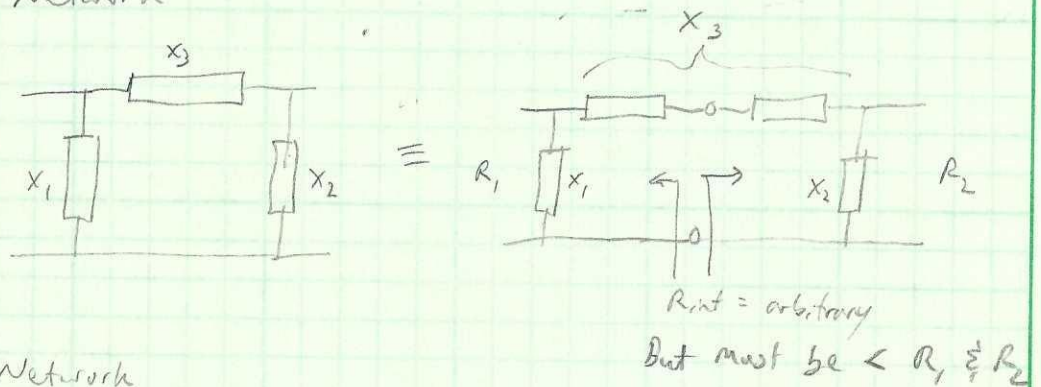 Network
X3
X3
X1
X2
≡
R1
X1
X2
R2
Rint = arbitrary
But must be < R1 & R2
Network